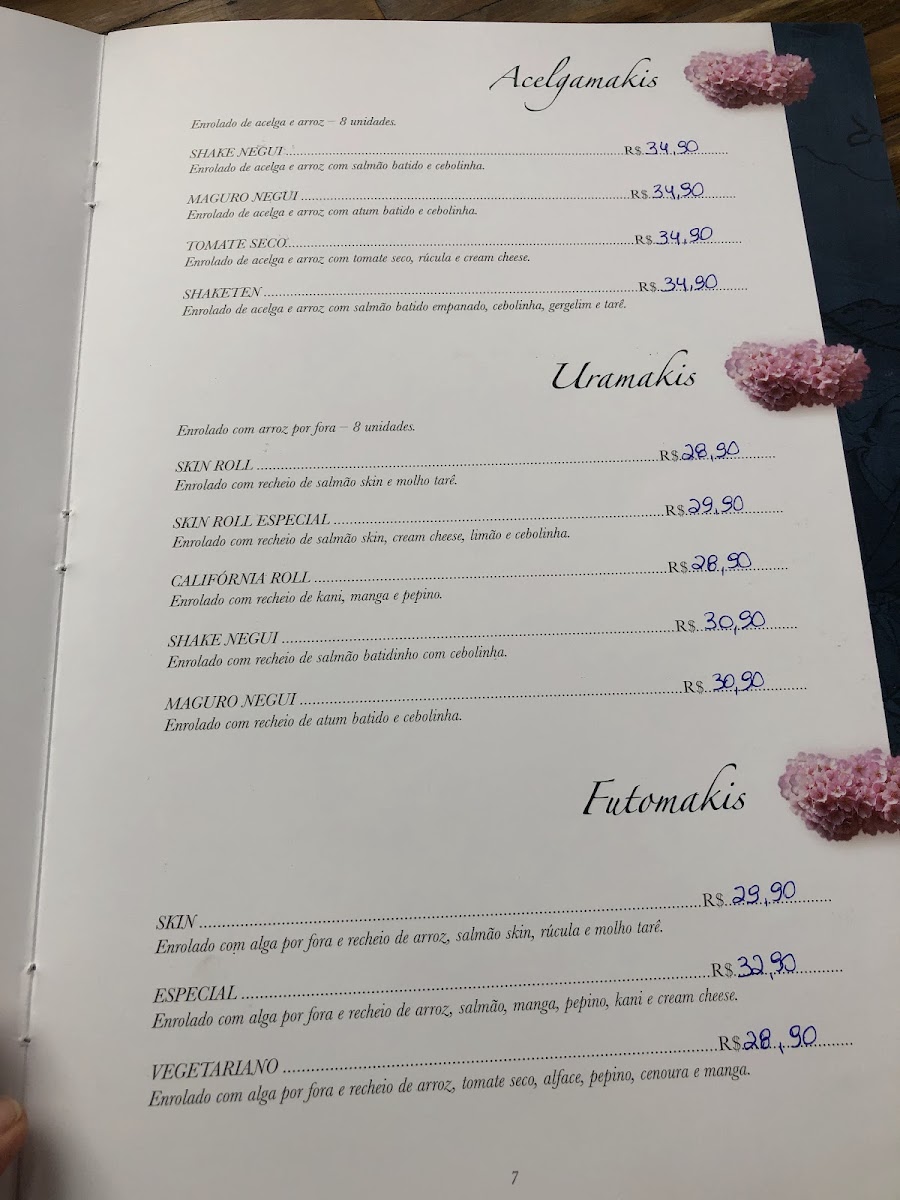 Acelgamakis
Enrolado de acelga e arroz – 8 unidades.
SHAKE NEGUI ........ R$ 34,90
Enrolado de acelga e arroz com salmão batido e cebolinha.
MAGURO NEGUI ........ R$ 34,90
Enrolado de acelga e arroz com atum batido e cebolinha.
TOMATE SECO ........ R$ 34,90
Enrolado de acelga e arroz com tomate seco, rúcula e cream cheese.
SHAKETEN ........ R$ 34,90
Enrolado de acelga e arroz com salmão batido empanado, cebolinha, gergelim e tarê.
Uramakis
Enrolado com arroz por fora – 8 unidades.
SKIN ROLL ........ R$ 28,90
Enrolado com recheio de salmão skin e molho tarê.
SKIN ROLL ESPECIAL ........ R$ 29,90
Enrolado com recheio de salmão skin, cream cheese, limão e cebolinha.
CALIFÓRNIA ROLL ........ R$ 28,90
Enrolado com recheio de kani, manga e pepino.
SHAKE NEGUI ........ R$ 30,90
Enrolado com recheio de salmão batidinho com cebolinha.
MAGURO NEGUI ........ R$ 30,90
Enrolado com recheio de atum batido e cebolinha.
Futomakis
SKIN ........ R$ 29,90
Enrolado com alga por fora e recheio de arroz, salmão skin, rúcula e molho tarê.
ESPECIAL ........ R$ 32,90
Enrolado com alga por fora e recheio de arroz, salmão, manga, pepino, kani e cream cheese.
VEGETARIANO ........ R$ 28,90
Enrolado com alga por fora e recheio de arroz, tomate seco, alface, pepino, cenoura e manga.
7